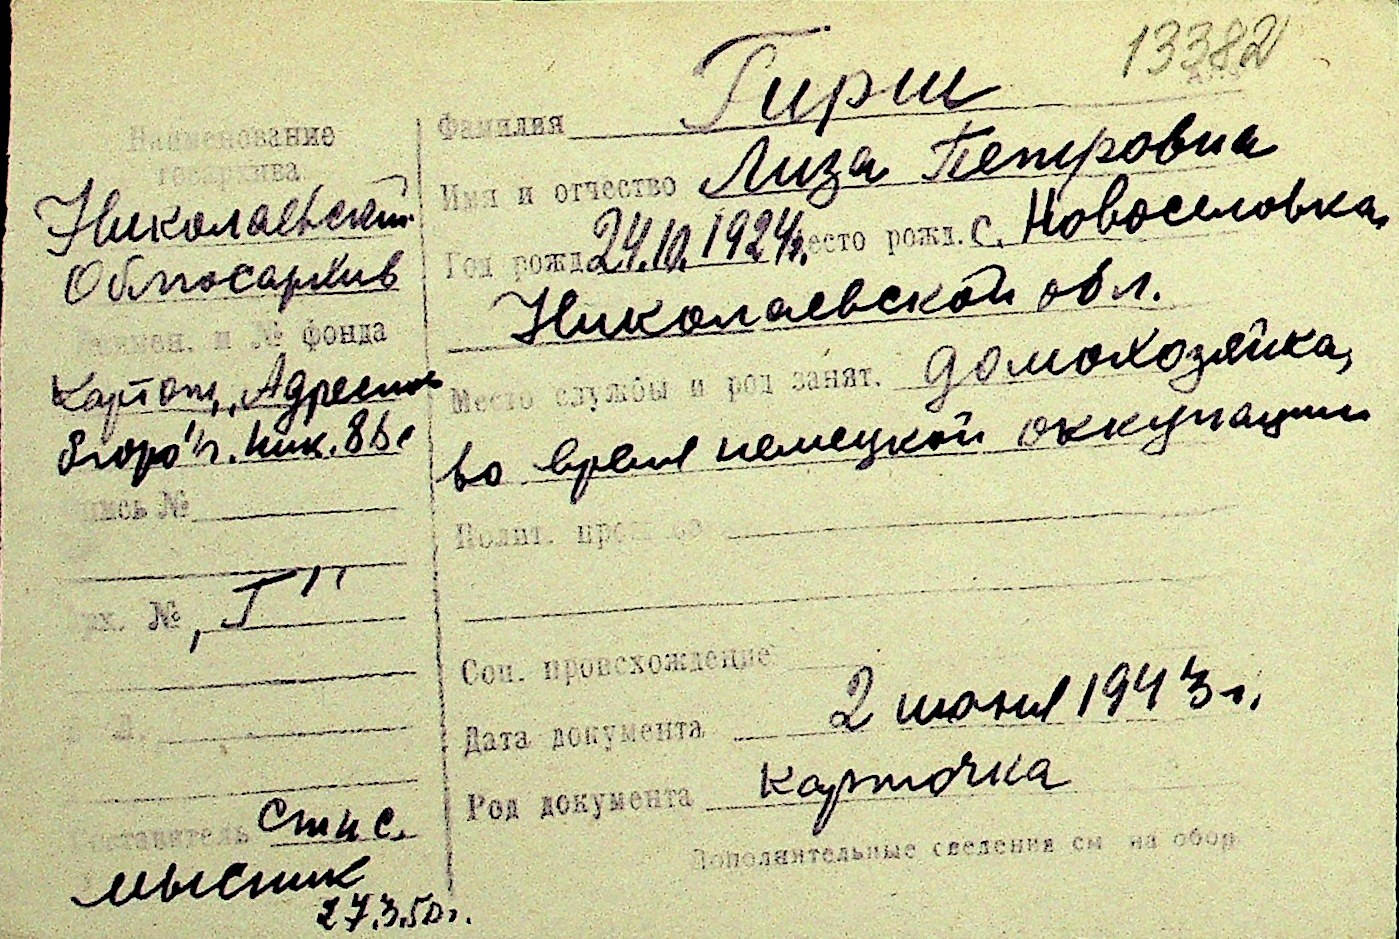 13382
Фамилия Гирш
Имя и отчество Лиза Петровна
Год рожд. 24.10.1924г. Место рожд. с. Новоселовка,
Николаевской обл.
Место службы и род занят. домохозяйка,
во время немецкой оккупации
Полит.
Соц. происхождение
Дата документа 2 июня 1943 г.
Род документа карточка
Дополнительные сведения см на обор
Наименование
госархива
Николаевский
Облгосархив
Наимен. и № фонда
Картот. „Адресно
бюро" г. Ник.
опись №
арх. № „Г"
Составитель стис.
мысник
27.3.50г.